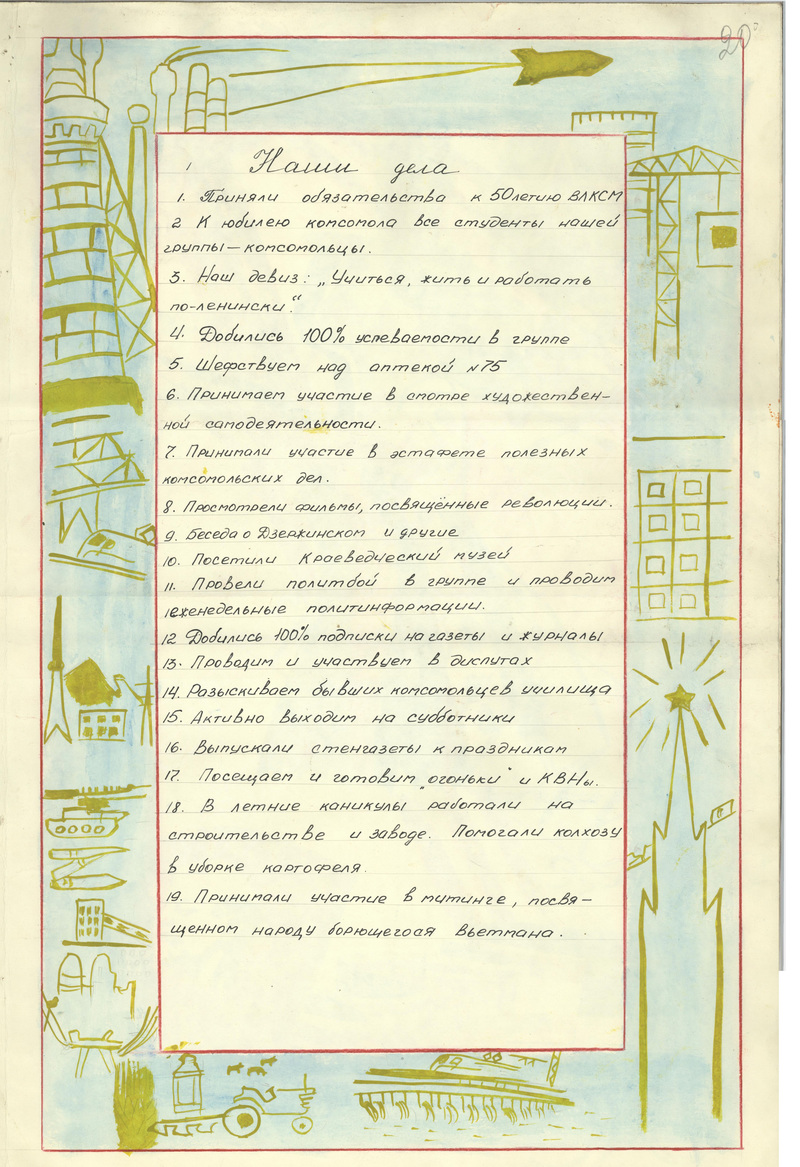 20
Наши дела
1. Приняли обязательства к 50летию ВЛКСМ
2 К юбилею комсомола все студенты нашей
группы — комсомольцы.
3. Наш девиз: „Учиться, жить и работать
по-ленински."
4. Добились 100% успеваемости в группе
5. Шефствуем над аптекой №75
6. Принимаем участие в смотре художествен-
ной самодеятельности.
7. Принимали участие в эстафете полезных
комсомольских дел.
8. Просмотрели фильмы, посвящённые революции.
9. Беседа о Дзержинском и другие
10. Посетили Краеведческий музей
11. Провели политбой в группе и проводим
еженедельные политинформации.
12 Добились 100% подписки на газеты и журналы
13. Проводим и участвуем в диспутах
14. Разыскиваем бывших комсомольцев училища
15. Активно выходим на субботники
16. Выпускали стенгазеты к праздникам
17. Посещаем и готовим „огоньки" и КВНы.
18. В летние каникулы работали на
строительстве и заводе. Помогали колхозу
в уборке картофеля.
19. Принимали участие в митинге, посвя-
щенном народу борющегося Вьетнама.